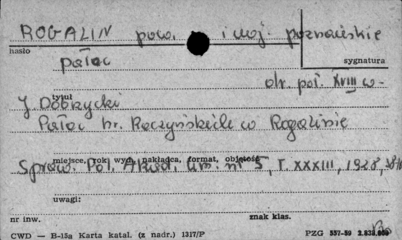 ROGALIN pow. i woj. poznańskie
hasło
pałac
sygnatura
dr. poł. XVIII w.
tytuł
J Dobrzycki
Pałac hr. Raczyńskich w Rogalinie
miejsce, rok wyd., nakładca, format, objętość
Spraw. Pol. Akad. Um. nr 5, T. XXXIII, 1928,
uwagi:
nr inw.
znak klas.
CWD — B-13a Karta katal. (z nadr.) 1317/P
PZG 557-59